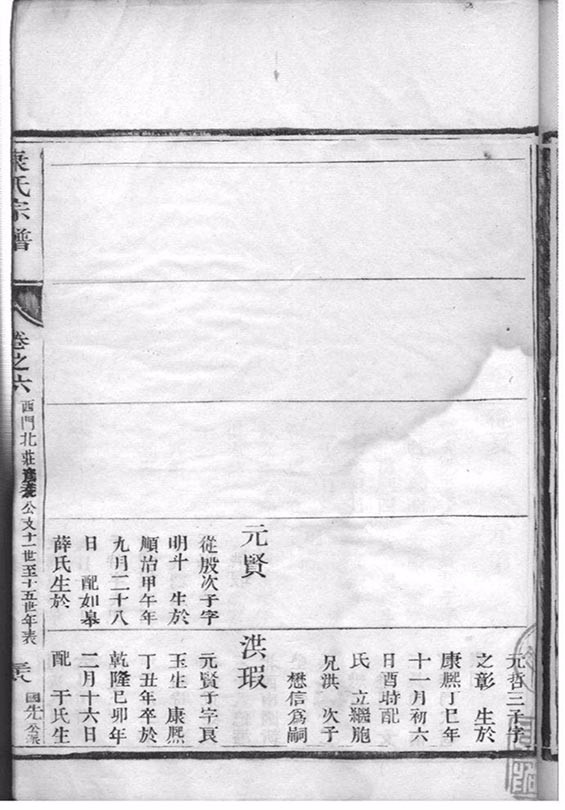 元哲三子字
之彰 生於
康熙丁巳年
十一月初六
日酉時配文
氏 立繼胞
兄洪 次子
懋信為嗣
元賢
從殷次子字
明斗 生於
順治甲午年
九月二十八
日 配如皋
薛氏生於
洪瑕
元賢子字良
玉生 康熙
丁丑年卒於
乾隆己卯年
二月十六日
配 于氏生
氏宗譜
卷之六
西門北莊
公支十一世至十五世年表
國先公派